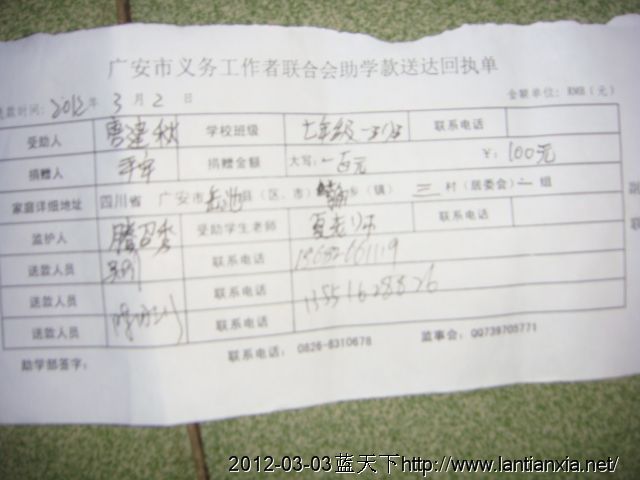 广安市义务工作者联合会助学款送达回执单
送款时间：2012年 3月 2日 金额单位：RMB（元）
受助人 唐建秋 学校班级 七年级一班 联系电话
捐赠人 平安 捐赠金额 大写：一百元 ￥：100元
家庭详细地址 四川省 广安市岳池县（区、市） 乡（镇） 三 村（居委会）二 组
监护人 受助学生老师 夏老师 联系电话
送款人员 联系电话 13682661119
送款人员 联系电话 13551628826
送款人员 联系电话
助学部签字： 联系电话：0826-8310678 监事会：QQ739705771
2012-03-03蓝天下http://www.lantianxia.net/